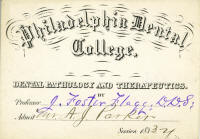 Philadelphia Dental
College.
DENTAL PATHOLOGY AND THERAPEUTICS.
BY
Professor J. Foster Flagg, D.D.S.,
Admit Mr. A. J. Parker
Session 1883-4